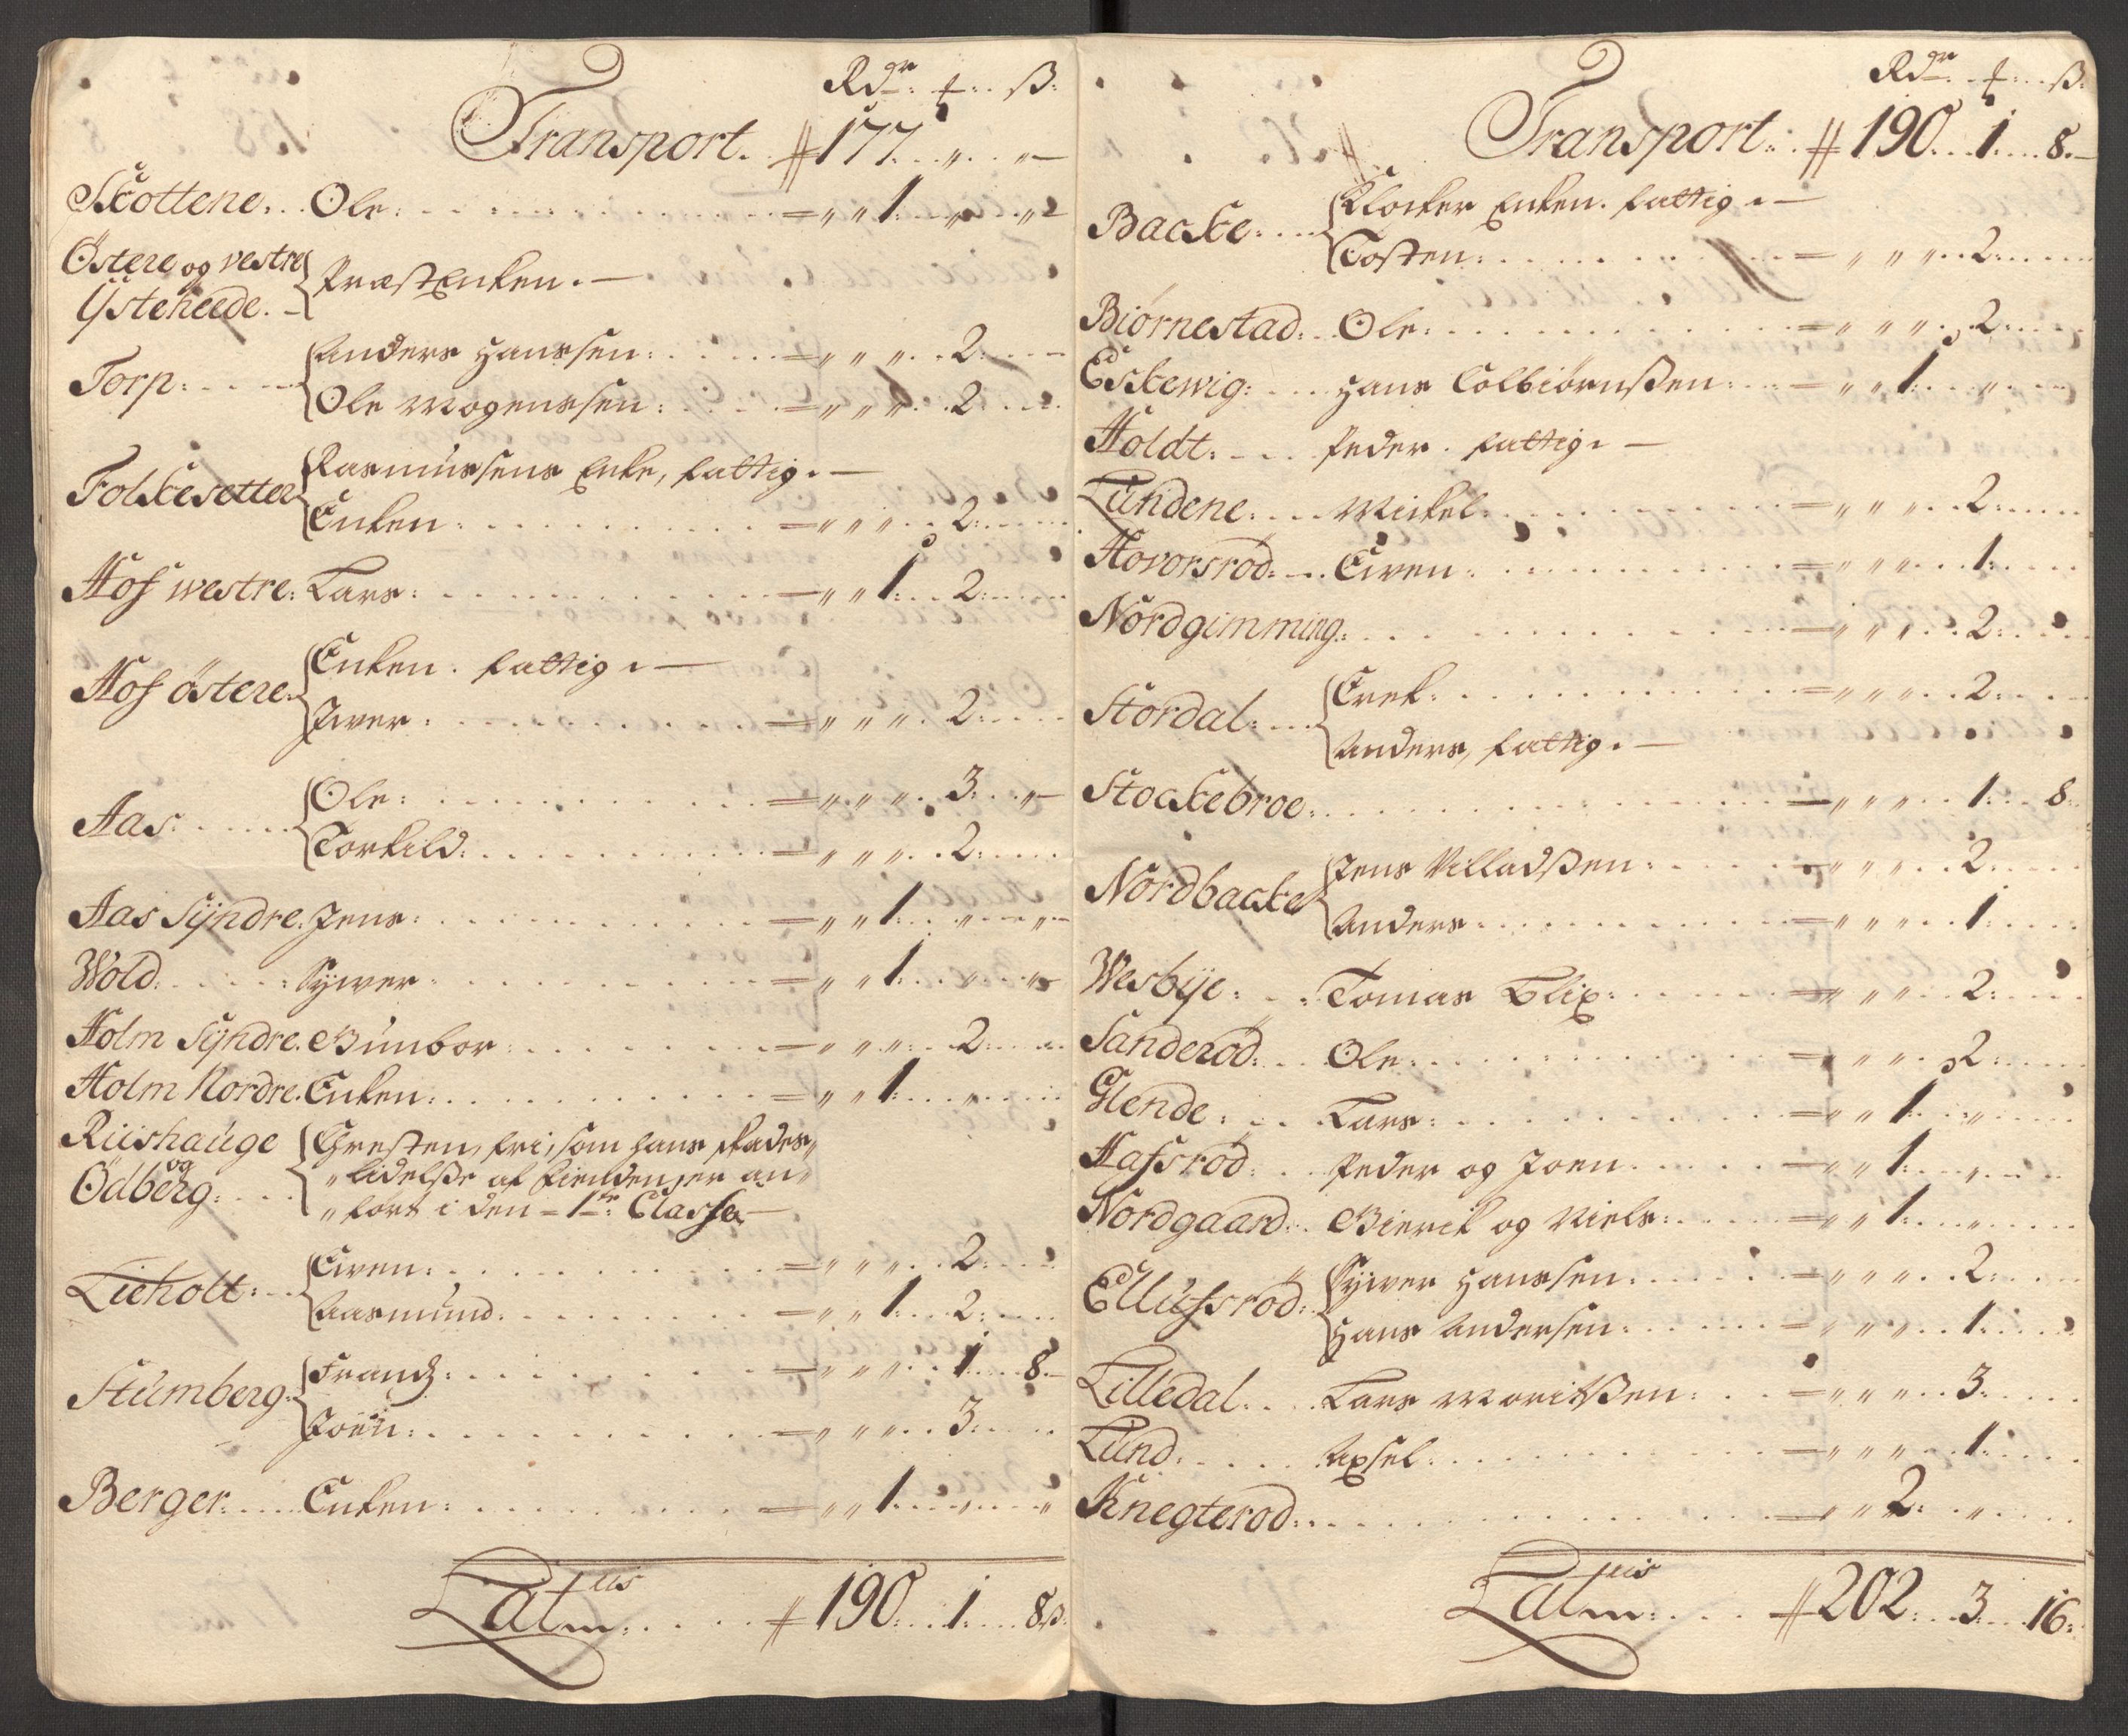 Rdr: ƒ: ß:
Transport. # 177. „. „
Skottene: Ole: „ „ 1. „. „
Östere og vestre
Ÿsteheede. Præst Enken.
Torp: Anders Hanssen: „ „ „ 2:
Ole Mogenssen: „ „ „ 2
Folckesetter Rasmussens Enke, fattig.
Enken: „ „ „ 2:
Hof westre: Lars: „ „ 1: 2:
Hof östere: Enken. fattig.
Iver: „ „ „ 2:
Aas: Ole: „ „ „ 3. „
Torkild: „ „ „ 2:
Aas Sÿndre. Jens: „ „ 1. „. „
Wold: Syver: „ „ 1. „. „
Holm Sÿndre. Gunbor: „ „ „ 2:
Holm Nordre. Enken: „ „ 1. „.
Riishauge
og
Ödberg: Christen, fri, som hans skades
„lidelsse af fienden, er an„
„fört i den 1te Classe
Lieholt: Even: „ „ „ 2:
Aasmund: „ „ 1: 2:
Stumberg: Frandz: „ „ „ 1. 8.
Joen: „ „ „ 3:
Berger: Enken: „ „ 1. „. „
Latus: # 190. 1. 8ß:
Rdr: ƒ: ß:
Transport: # 190. 1. 8.
Backe: Klocker Enken. fattig.
Tosten: „ „ „ 2:
Biörnestad: Ole: „ „ „ 2:
Eskewig: Hans Colbiörnßen: „ „ 1. „.
Holdt: Peder. fattig.
Lundene: Mickel: „ „ „ 2:
Hovorsröd: Even: „ „ „ 1:
Nordgimming: „ „ „ 2:
Stordal: Erek: „ „ „ 2:
Anders, fattig.
Stockebroe: „ „ „ 1: 8
Nordbacke Jens Villadßen: „ „ „ 2:
Anders: „ „ „ 1:
Wesbÿe: Tomas Blix: „ „ „ 2:
Sanderöd: Ole: „ „ „ 2:
Glende: Lars: „ „ 1. „
Hafsröd: Peder og Joen: „ „ 1. „
Nordgaard: Gierik og Niels: „ „ 1. „
Ellufsröd: Syver Hanssen: „ „ „ 2:
Hans Andersen: „ „ „ 1:
Lilledal: Lars Moritzen: „ „ „ 3:
Lund: Axsel: „ „ „ 1:
Knegteröd: „ „ 2: „
Latus: # 202. 3. 16: